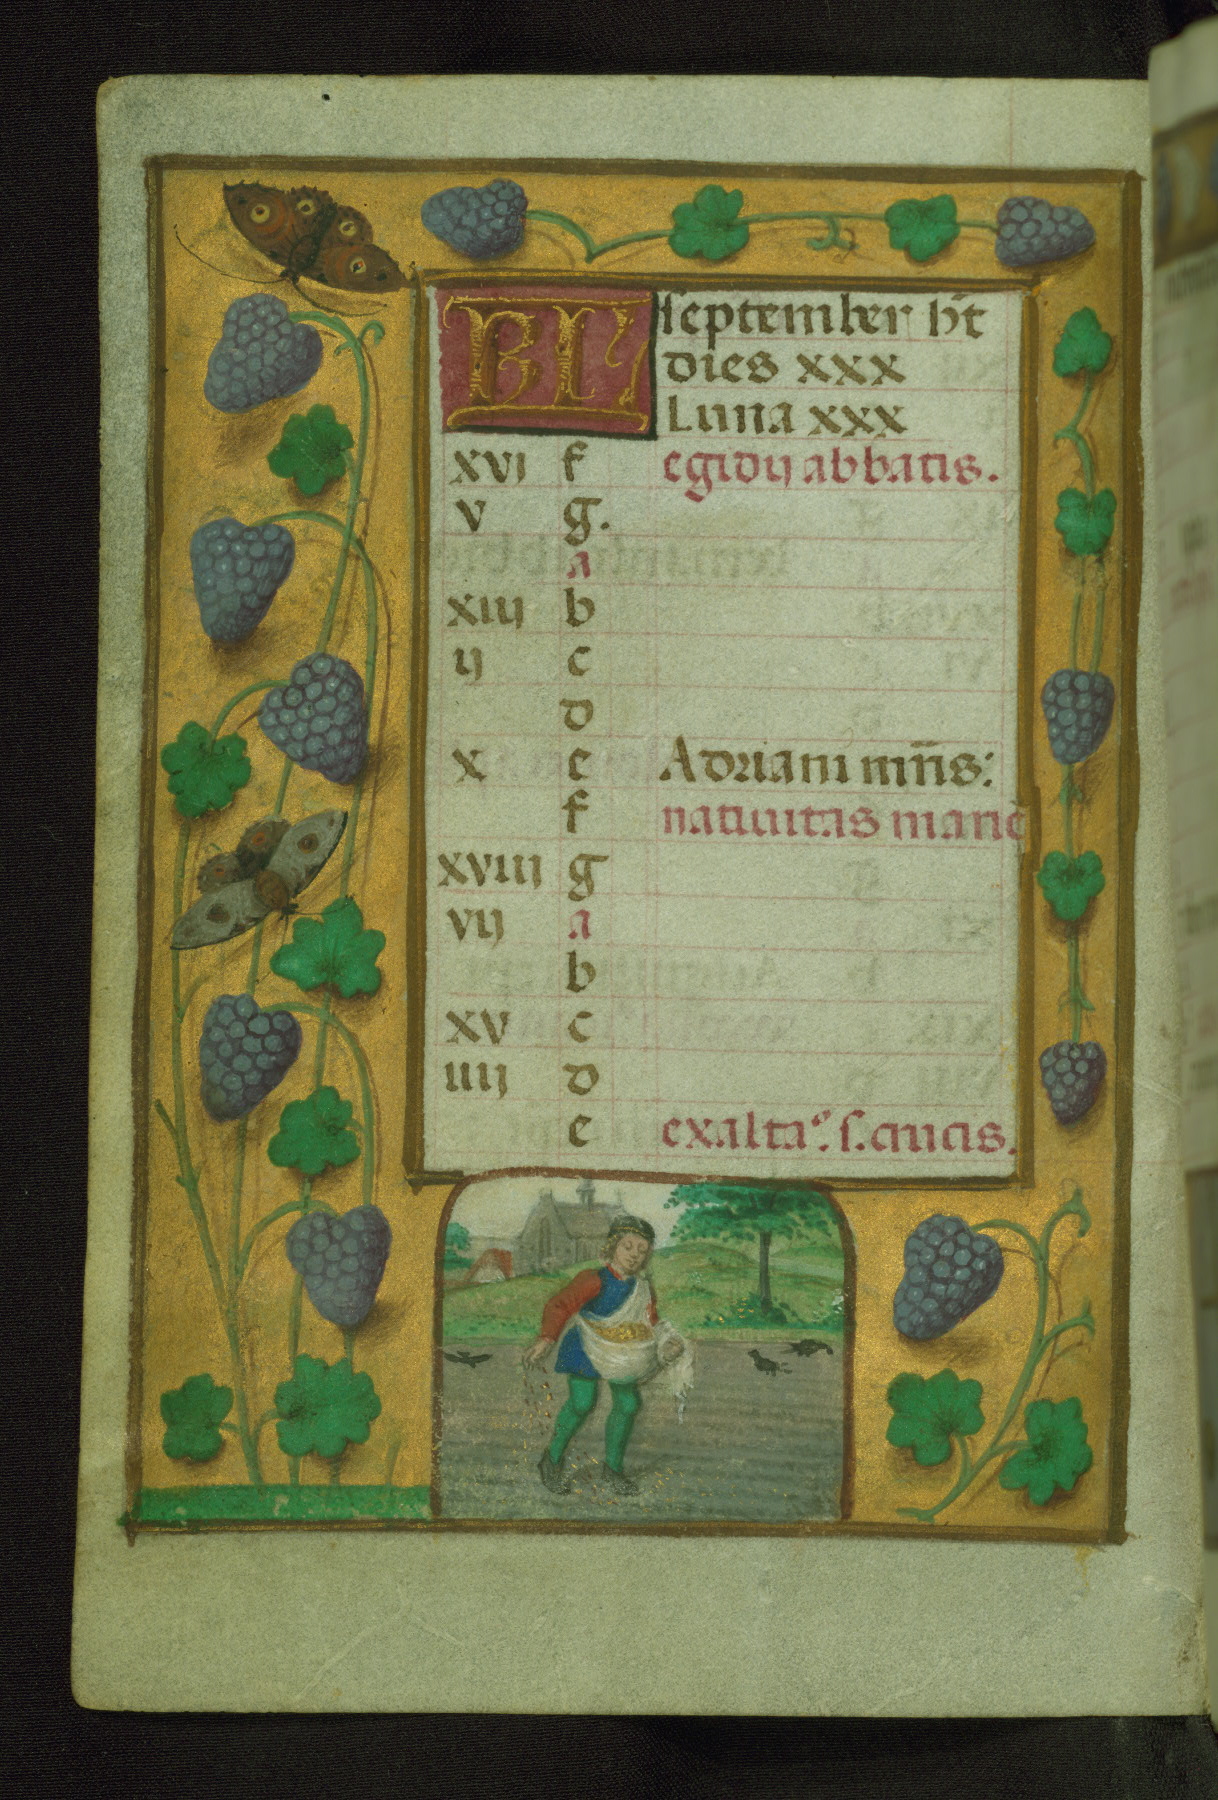 KL september ht
dies xxx
Luna xxx
xvi f egidij abbatis.
v g.
a
xiij b
ij c
d
x e Adriani mris:
f natiuitas marie
xviij g
vij a
b
xv c
iiij d
e exaltao. s. crucis.